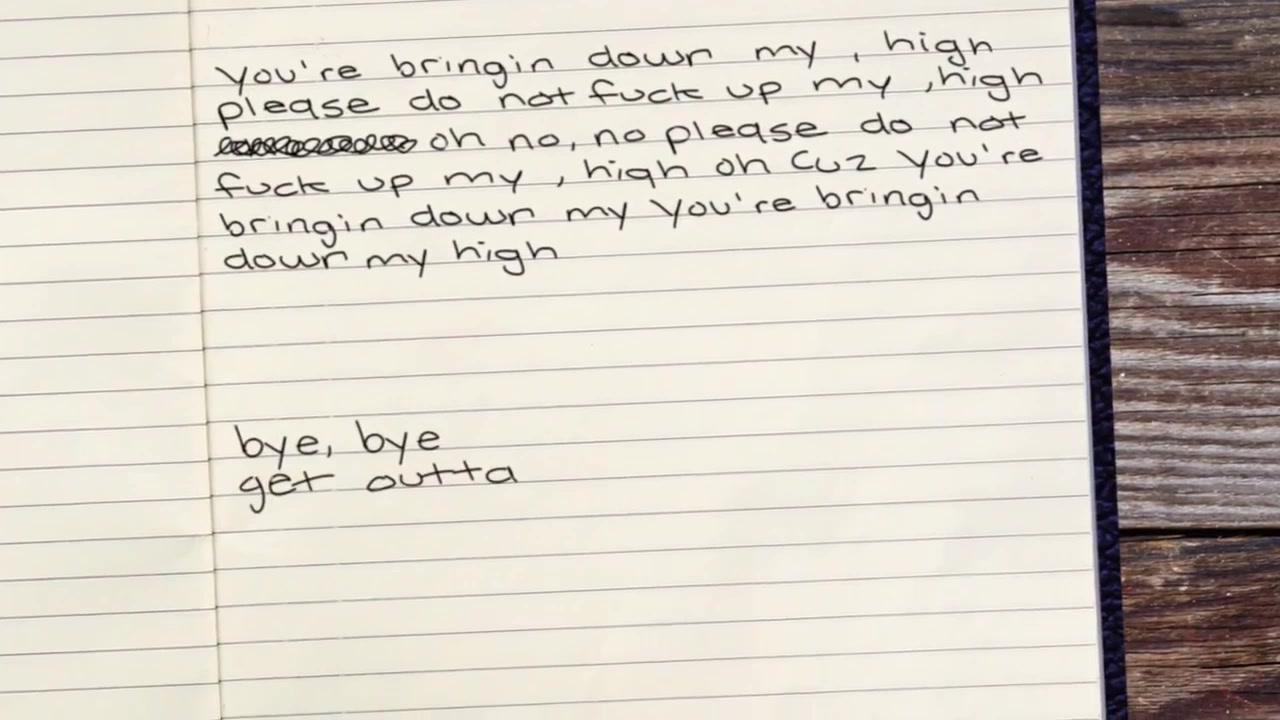 You're bringin down my , high
please do not fuck up my ,high
oh no, no please do not
fuck up my , high oh cuz you're
bringin down my you're bringin
down my high
bye, bye
get outta